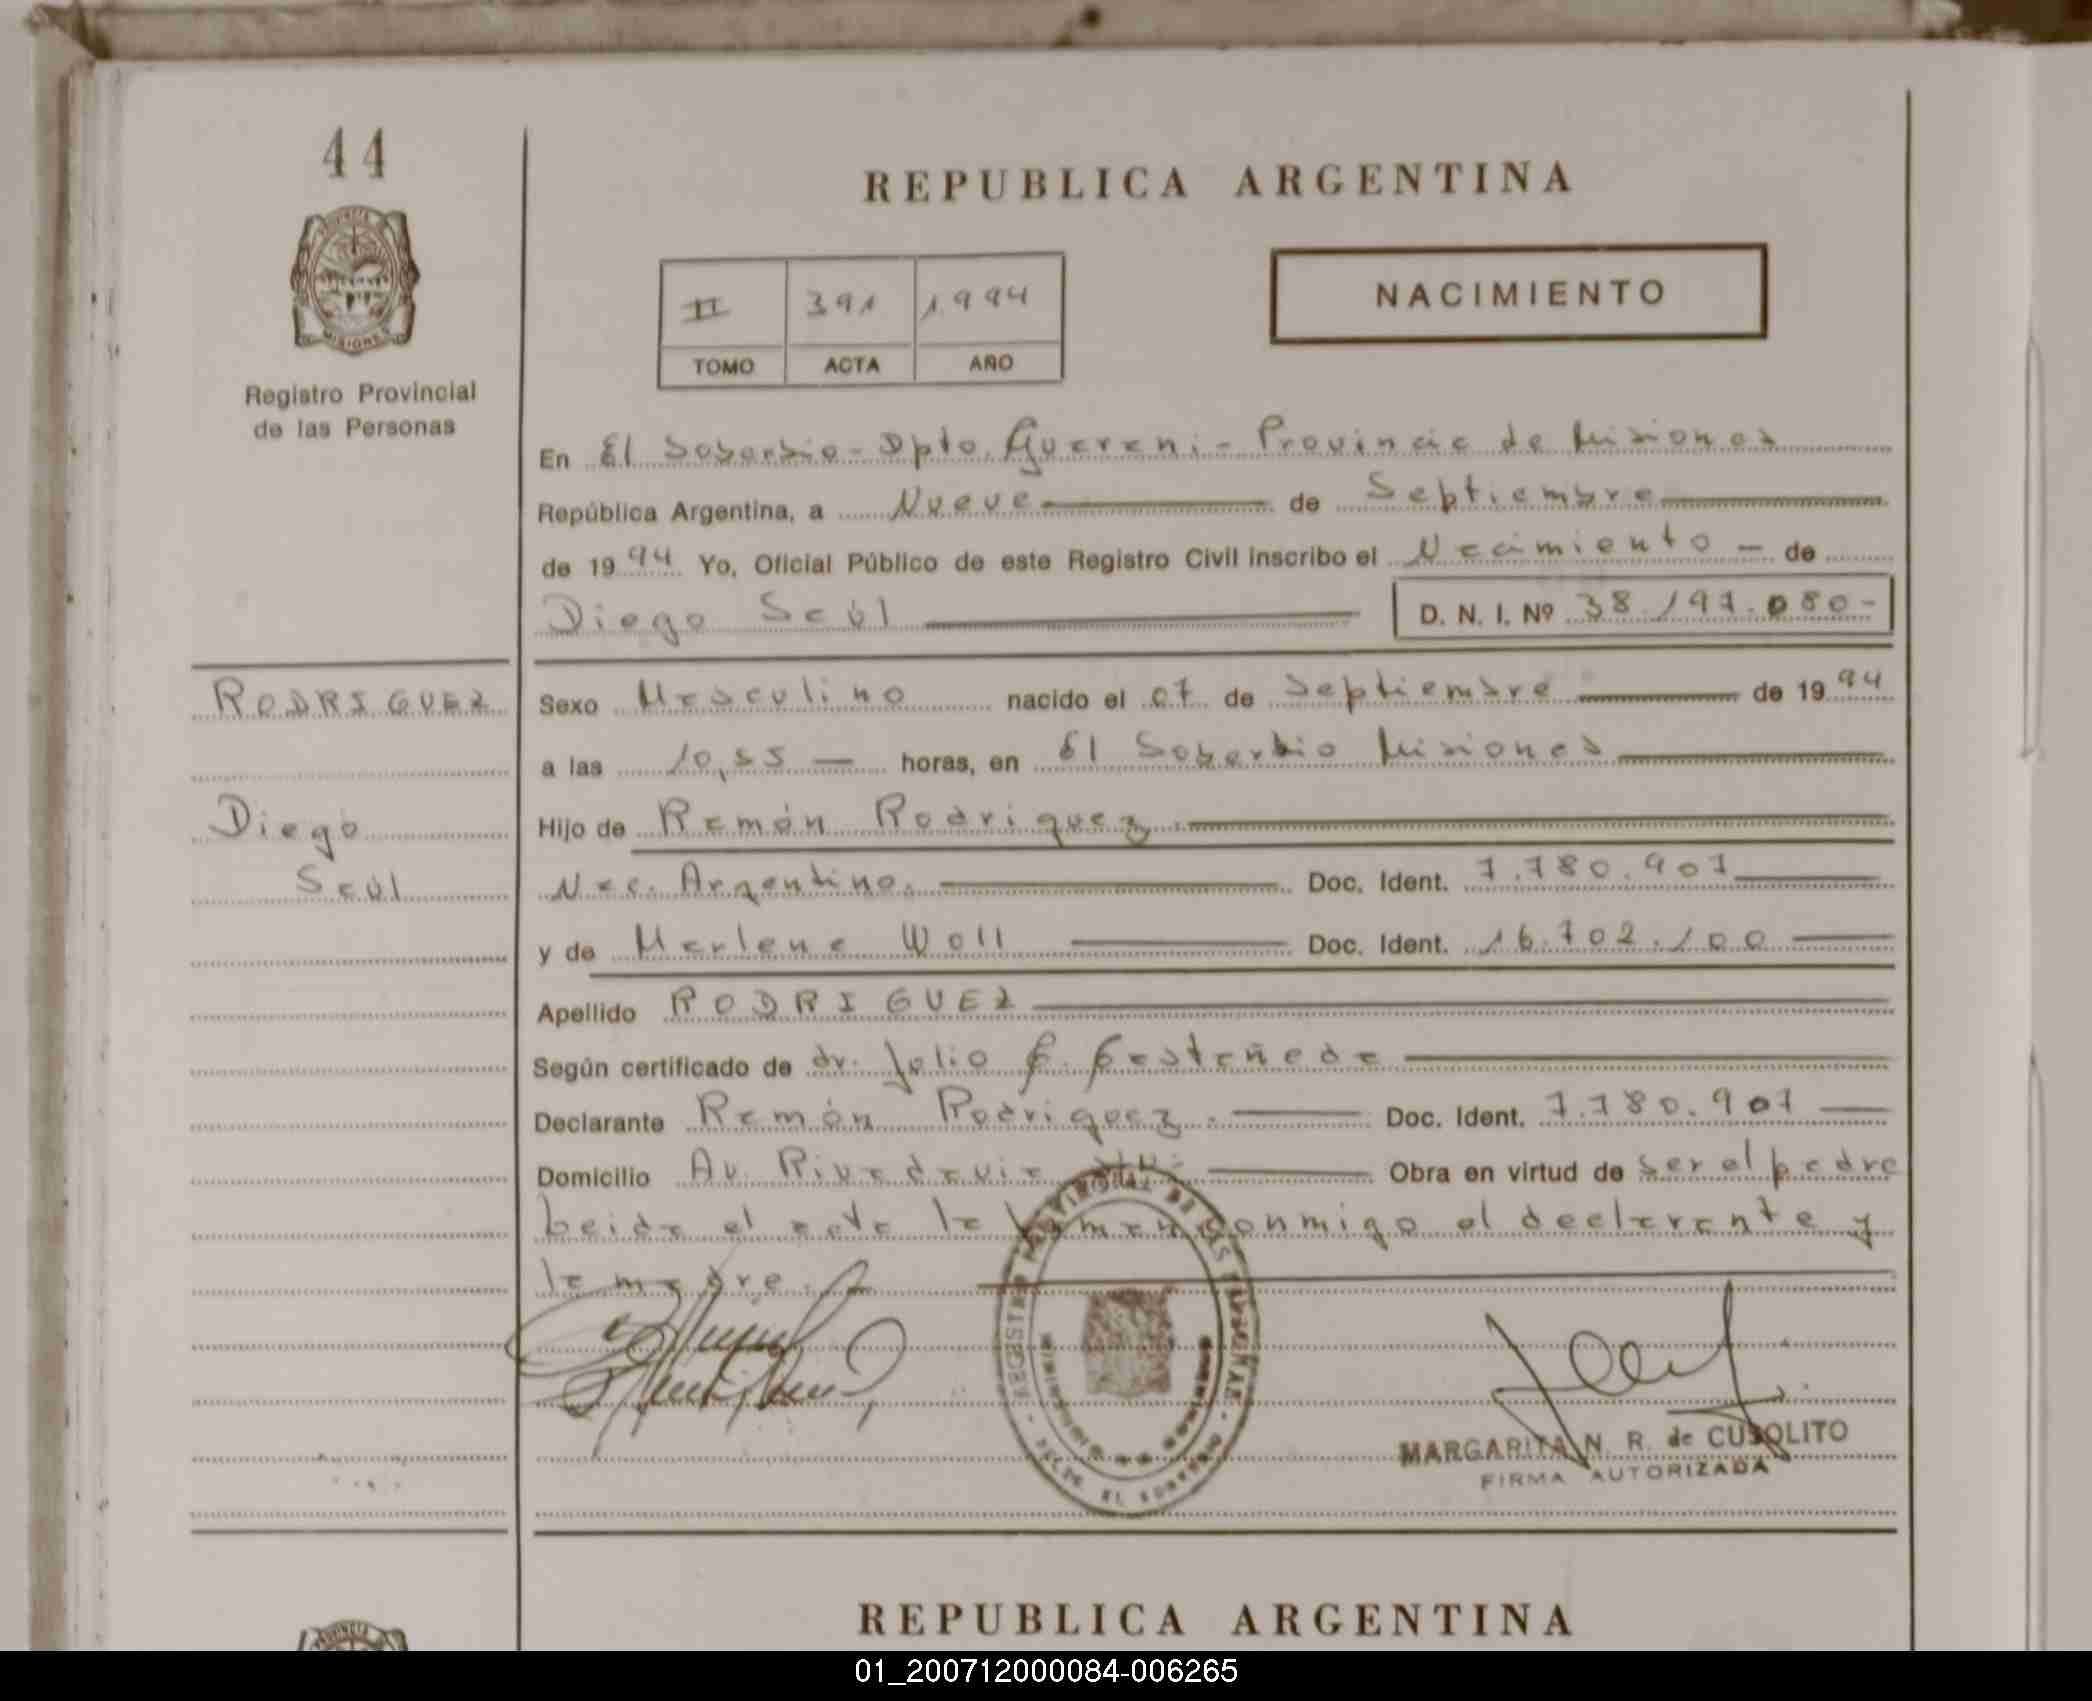 44
REPUBLICA ARGENTINA
PROVINCIA
MISIONES
Registro Provincial
de las Personas
II 391 1994
TOMO ACTA AÑO
NACIMIENTO
En El Soberbio - Dpto. Guarani - Provincia de Misiones
República Argentina, a Nueve de Septiembre
de 1994 Yo, Oficial Público de este Registro Civil inscribo el Nacimiento - de
Diego Saúl D. N. I. Nº 38.197.080-
RODRIGUEZ
Diego
Saúl
Sexo Masculino nacido el 07 de Septiembre de 1994
a las 10,55 — horas, en El Soberbio Misiones
Hijo de Ramón Rodriguez.
Nac. Argentino. Doc. Ident. 7.780.907
y de Marlene Woll Doc. Ident. 16.702.100
Apellido RODRIGUEZ
Según certificado de dr. Julio C. Castañeda
Declarante Ramón Rodriguez. Doc. Ident. 7.780.907
Domicilio Av. Rivadavia Obra en virtud de ser el padre
Leida el acta la firman conmigo el declarante y
la madre.
REGISTRO PROVINCIAL DE LAS PERSONAS
EL SOBERBIO
MARGARITA N. R. de CUSOLITO
FIRMA AUTORIZADA
REPUBLICA ARGENTINA
PROVINCIA
01_200712000084-006265